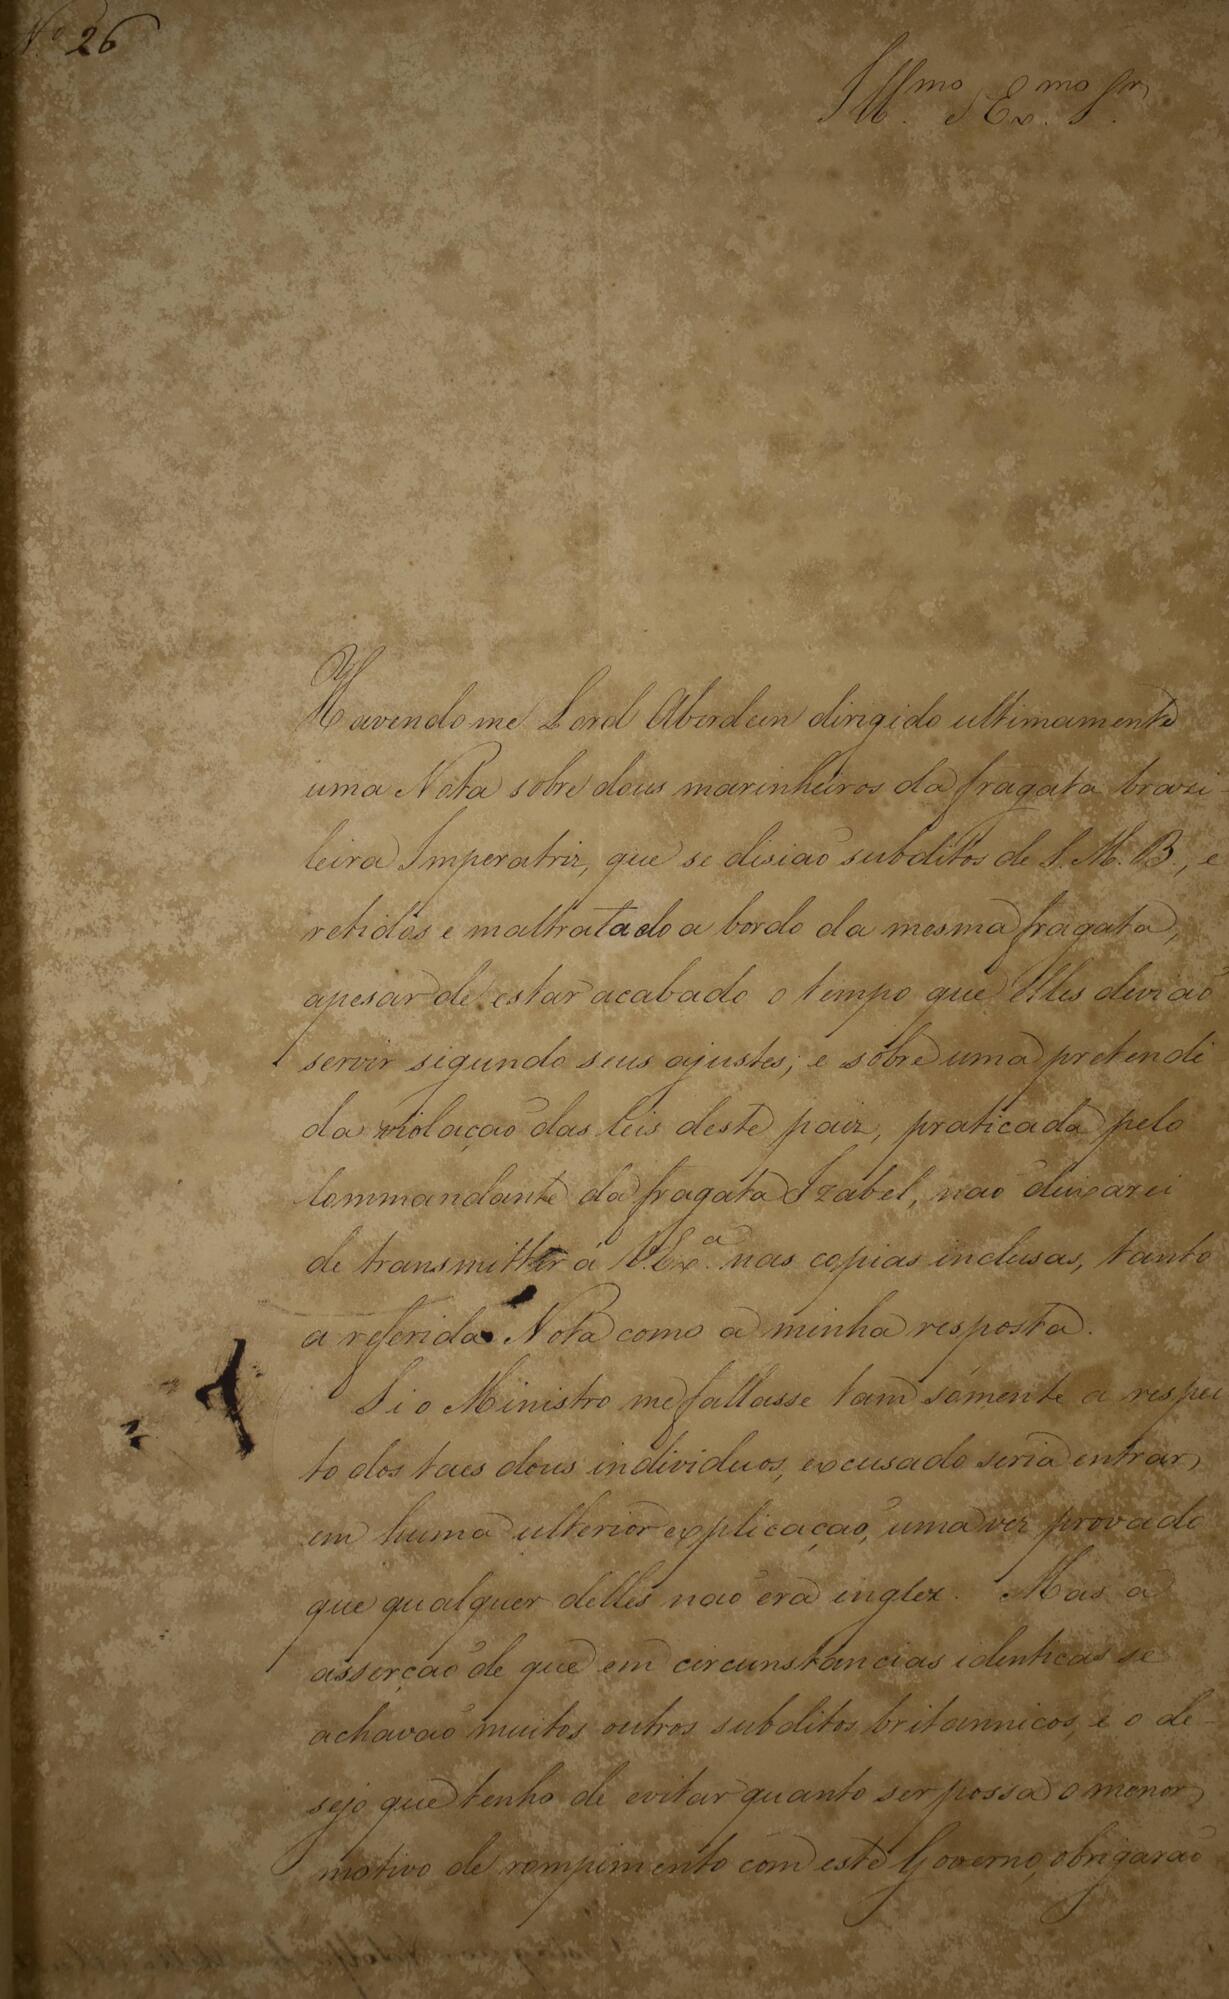 Nº 26
Illmo. e Exmo. Sr.
Havendo me Lord Aberdeen dirigido ultimamente
uma Nota sobre dous marinheiros da fragata brazi-
leira Imperatriz, que se disiaõ subditos de S. M. B., e
retidos e maltratado a bordo da mesma fragata,
apesar de estar acabado o tempo que elles deviaõ
servir segundo seus ajustes; e sobre uma pretendi
da violaçaõ das leis deste paiz, praticada pelo
Commandante da fragata Izabel, naõ deixarei
de transmittir á V. Exª. nas copias inclusas, tanto
a referida Nota como a minha resposta.
Si o Ministro me fallasse tam sómente a respei
to dos taes dous individuos, excusado seria entrar
em huma ulterior explicaçaõ, uma vez provado
que qualquer delles naõ era inglez. Mas a
asserçaõ de que em circunstancias identicas se
achavaõ muitos outros subditos britannicos, e o de-
sejo que tenho de evitar quanto ser possa o menor
motivo de rompimento com este Governo, obrigaraõ